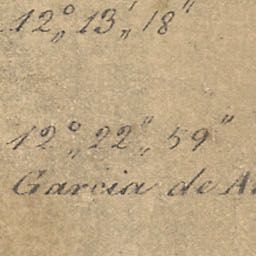 12°„ 13'„ 18"
12°„ 22"„ 59"
Garcia de